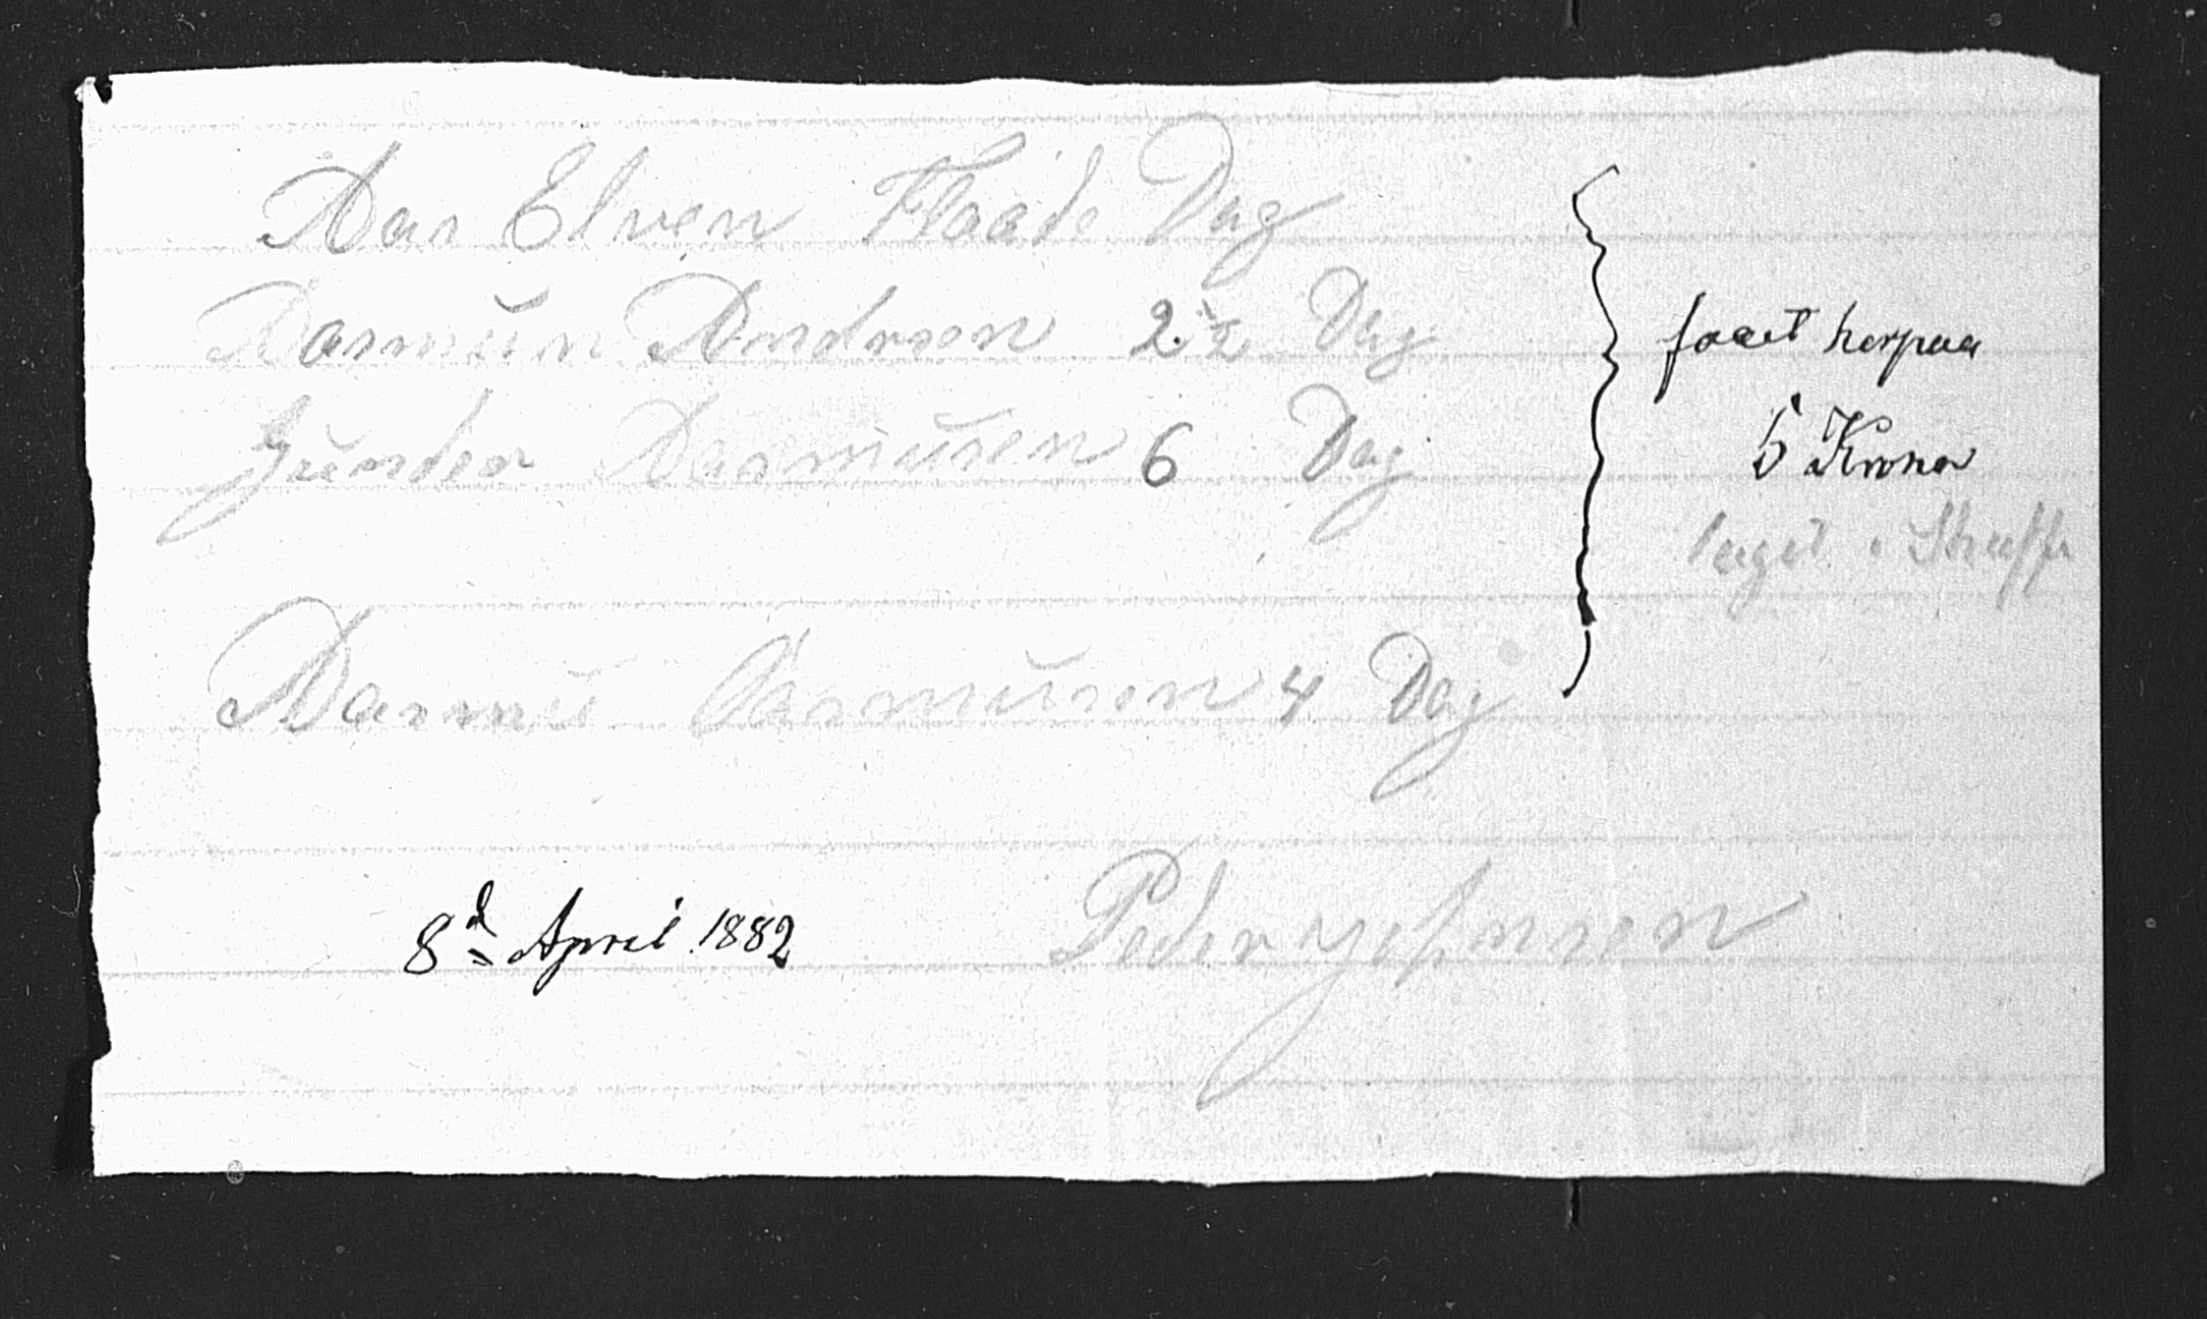 Aas Elven Flaade Dag
Rasmus Andrsen 2 ½ Dag
Gunder Rasmusen 6 Dag
Rasmus Rasmusen 4 Dag
faaet herpaa
5 Kroner
8d April 1882
Peder